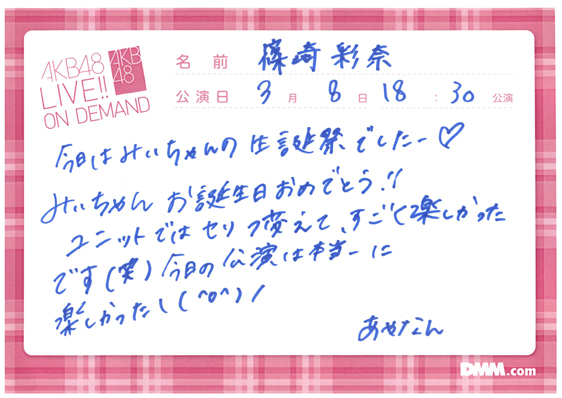 AKB48
LIVE!!
ON DEMAND
AKB
48
名前 篠崎彩奈
公演日 3月8日 18:30 公演
今日はみぃちゃんの生誕祭でしたー♡
みぃちゃん お誕生日おめでとう!!
ユニットではセリフ変えて、すごく楽しかった
です(笑)今日の公演は本当ーに
楽しかったし(^o^)/
あやなん
DMM.com